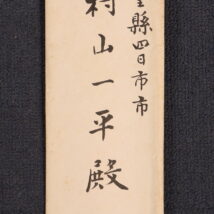 縣四日市市
村山一平殿